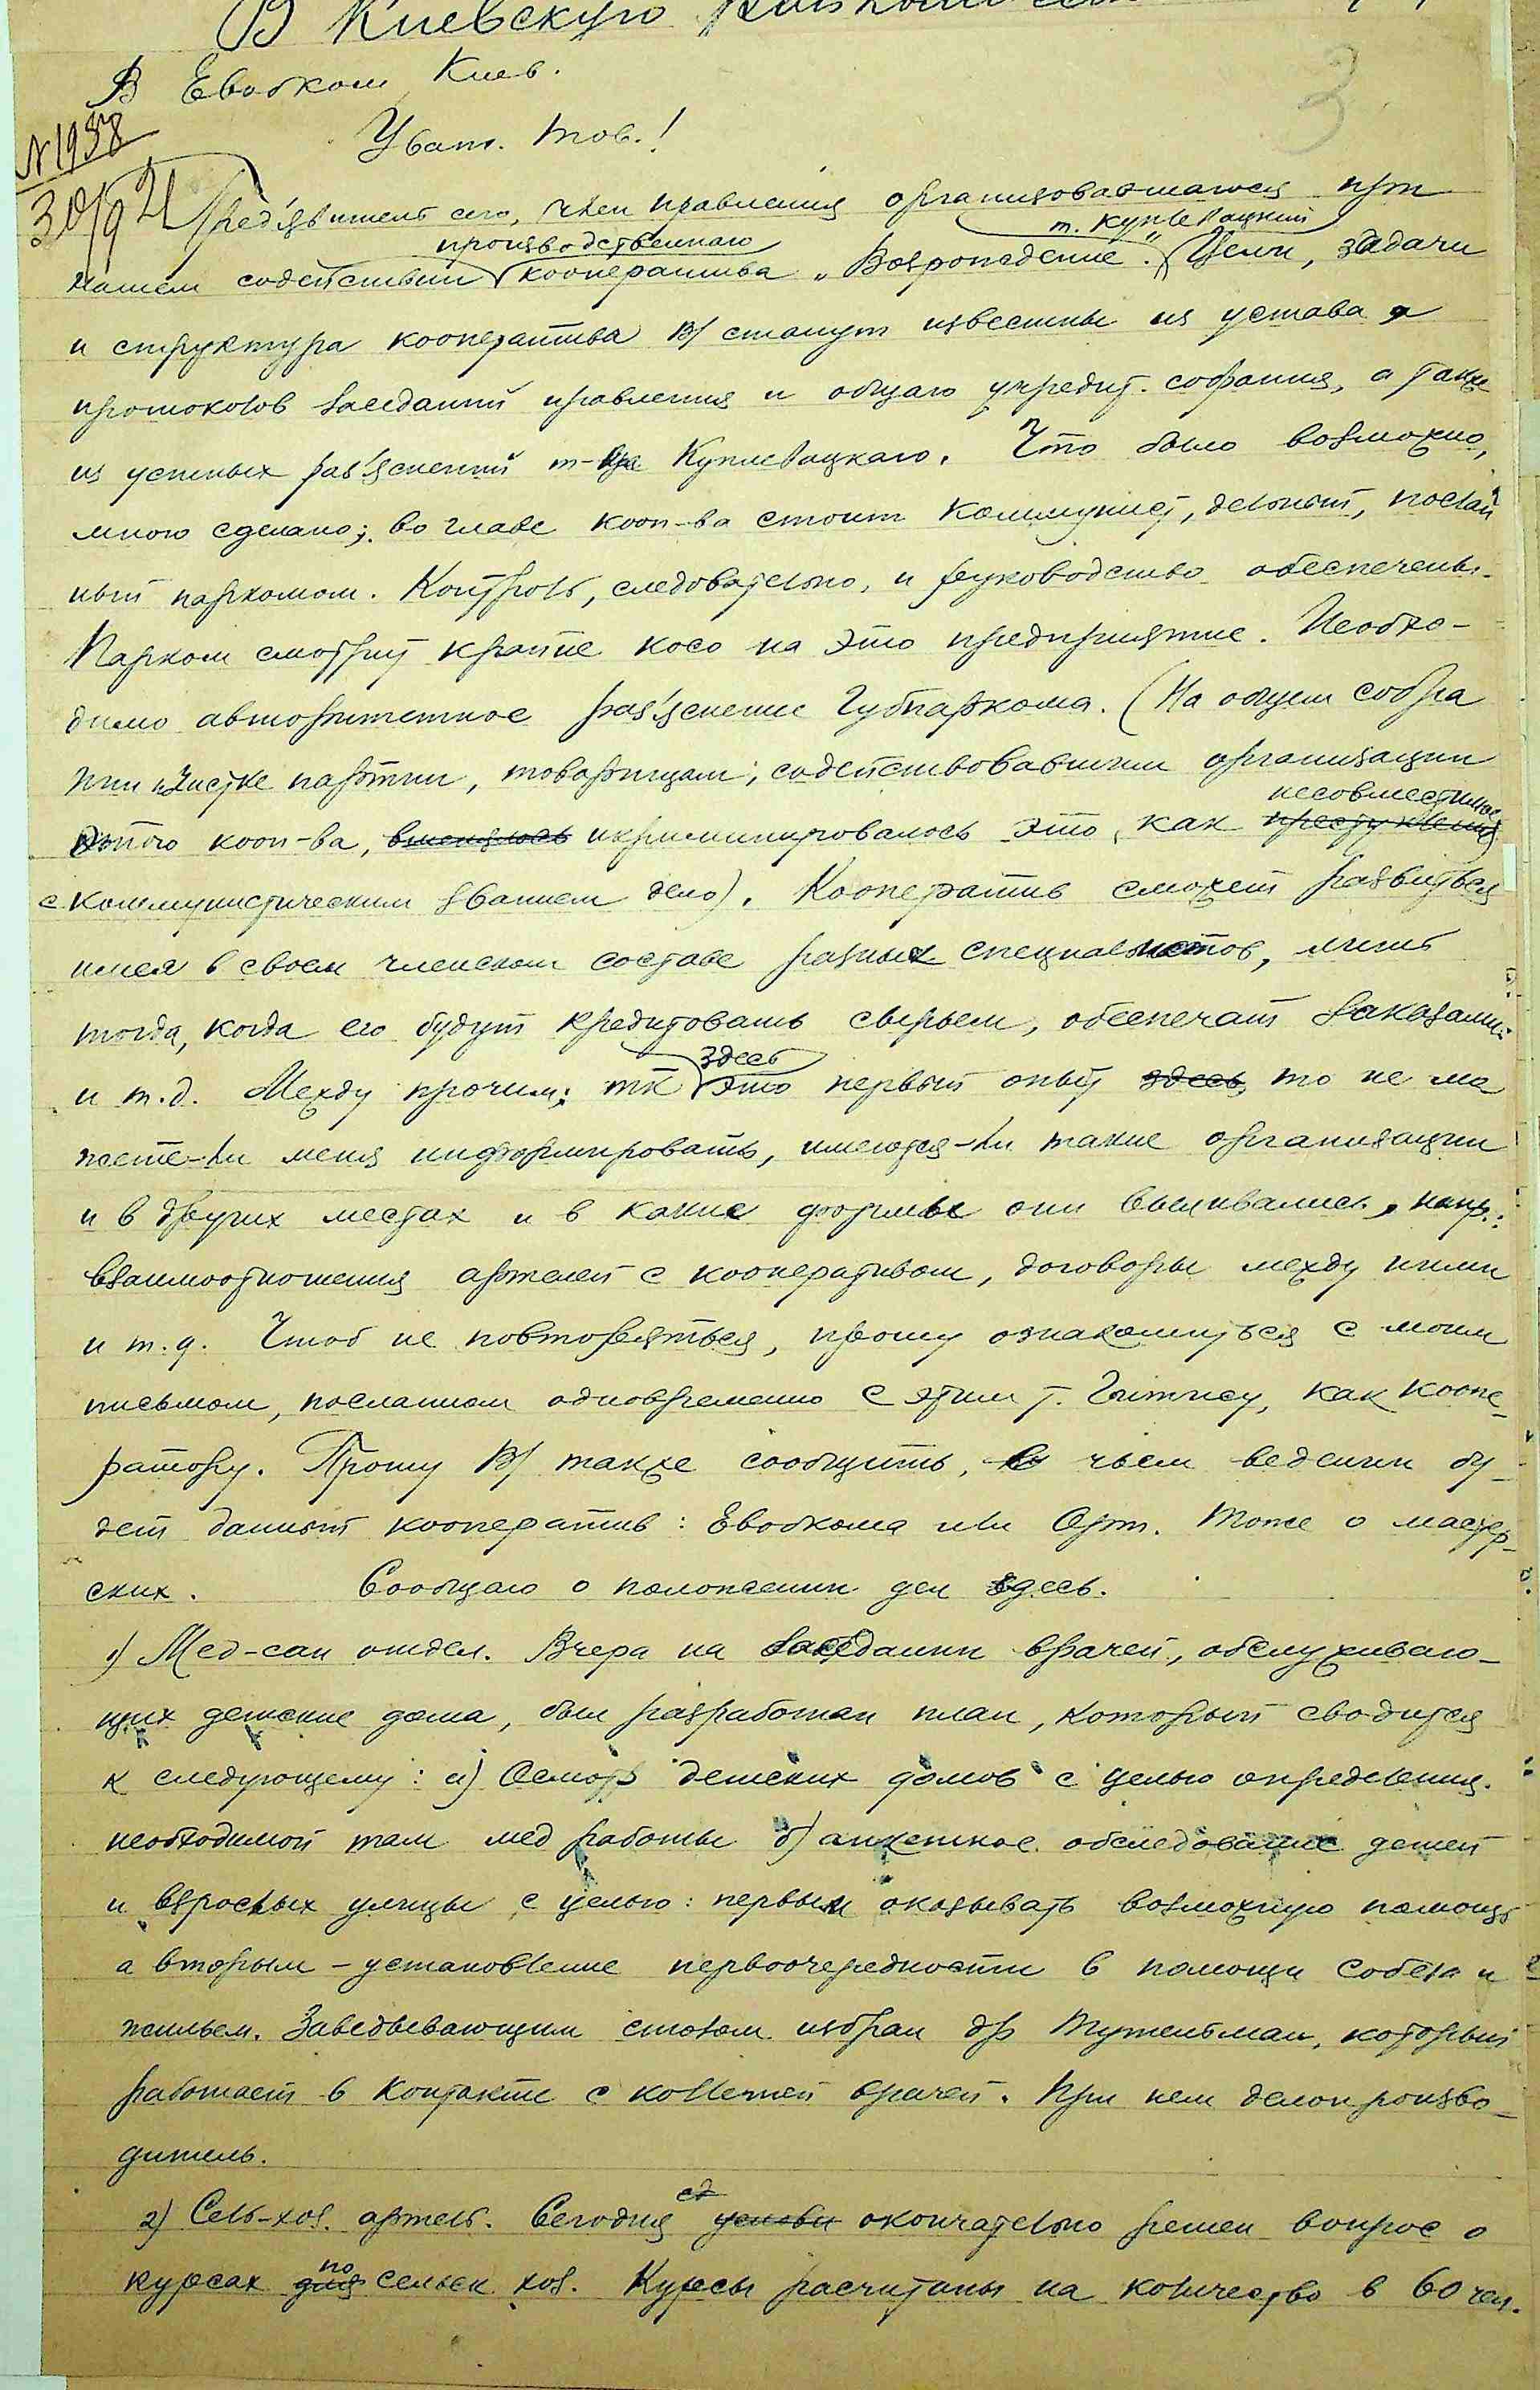 В Киевскую
В Евобком Киев.
3
N 1958
Уваж. тов.!
30/9 21
Пред'явитель сего, член правления организовавшагося при
производственнаго т. Куплевацкий
нашем содействии кооператива „Возрождение". Цели, задачи
и структура кооператива В/ станут известны из устава и
протоколов заседаний правления и общаго учредит. собрания, а также
из устных раз'яснений т-ща Куплевацкаго. Что было возможно,
мною сделано; во главе кооп-ва стоит коммунист, дельный, послан
ный парkомом. Контроль, следовательно, и руководство обеспечены.
Парком смотрит крайне косо на это предприятие. Необхо-
димо авторитетное раз'яснение Губпаркома. (На общем собра
нии по чистке партии, товарищам, содействовавшим организации
несовместимое
этого кооп-ва, вменялось инкриминировалось это, как преступление
с коммунистическим званием дело). Кооператив сможет развиться
имея в своем членском составе разных специалистов, лишь
тогда, когда его будут кредитовать сырьем, обеспечат заказами
здесь
и т.д. Между прочим; тк это первый опыт здесь, то не мо
жете-ли меня информировать, имеются-ли такие организации
и в других местах и в какие формы они выливались, напр.:
взаимоотношения артелей с кооперативом, договоры между ними
и т.д. Чтоб не повторяться, прошу ознакомиться с моим
письмом, посланном одновременно с этим т. Гитису, как коопе-
ратору. Прошу В/ также сообщить, в чьем ведении бу-
дет данный кооператив: Евобкома или Орт. Тоже о мастер-
ских. Сообщаю о положении дел здесь.
1) Мед-сан отдел. Вчера на заседании врачей, обслуживаю-
щих детские дома, был разработан план, который сводится
к следующему: а) Осмотр детских домов с целью определения
необходимой там мед работы б) анкетное обследование детей
и взрослых улицы с целью: первым оказывать возможную помощь
а вторым – установление первоочередности в помощи собеса и
жильем. Заведывающим столом избран др Тужельман, который
работает в контакте с коллегией врачей. При нем делопроизво-
дитель.
ст
2) Сель-хоз. артель. Сегодня условн окончательно решен вопрос о
по
курсах для сельск. хоз. Курсы расчитаны на количество в 60 чел.